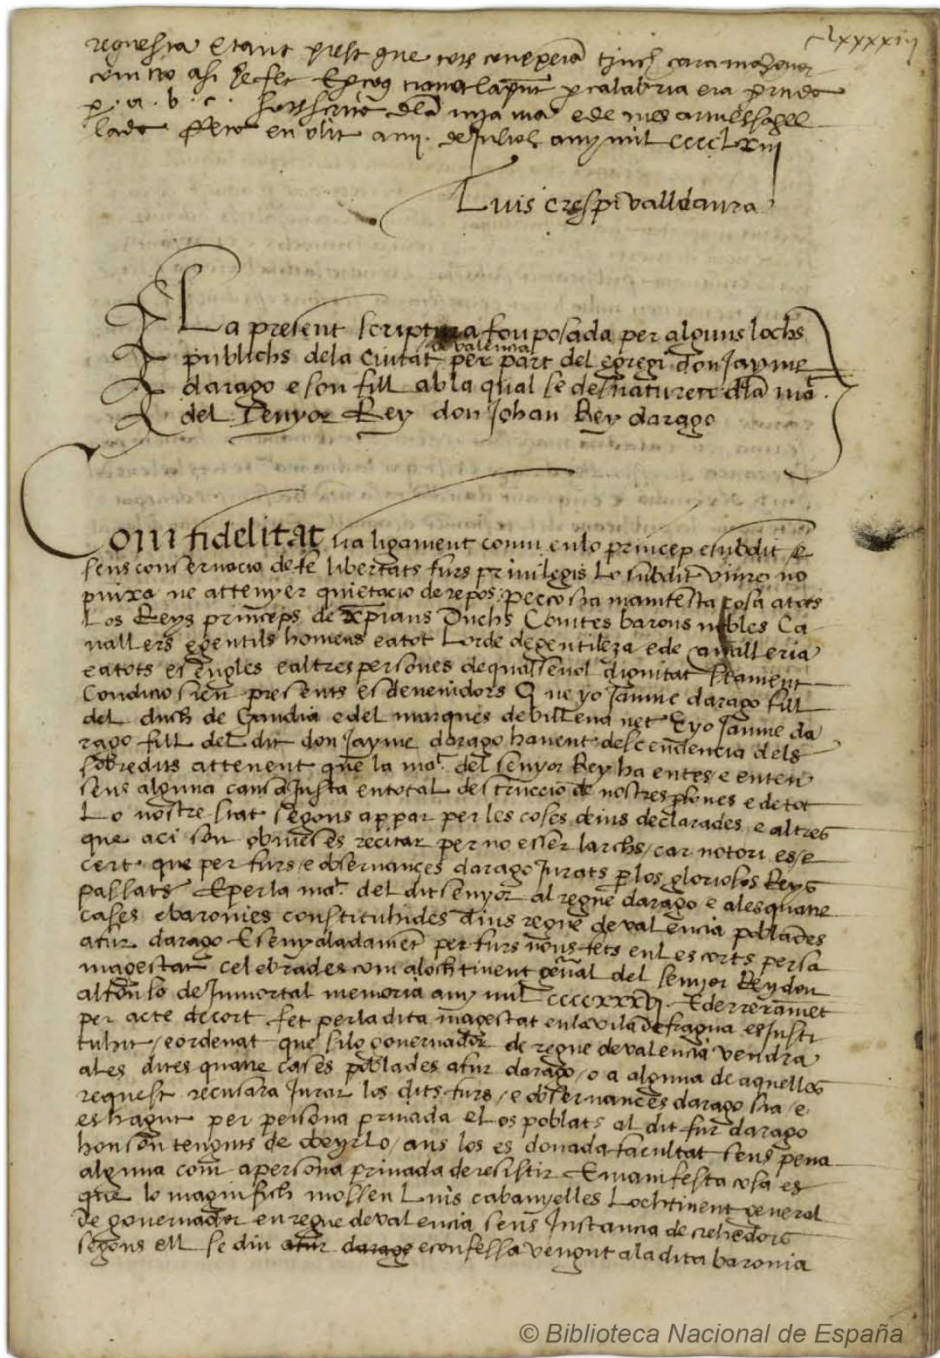 clxxxxiiij
requesta e tant prest que tots conexera tinch cara mahonor
com no asi he fet per calabria era prnde
p . a . b . c . sotscrita dela mja ma e de mes armes sagel
lada ffeta en olit a iiij. de Juliol any mil cccclxiij
Luis crespi valldaura
La present scriptura fon posada per alguns lochs
publichs dela Ciutat de valencia per part del egregi don Jayme
darago e son fill abla qual se desnaturen dla ma.
del Senyor Rey don Johan Rey darago
Com fidelitat sia ligament comu enlo princep e subdit e
sens conservacio de fe libertats furs privilegis Lo subdit viure no
puixa ne attenyer quietacio de repos. Per ço sia manifesta cosa a tots
Los Reys princeps de xpians Duchs Comtes barons nobles Ca
vallers e gentils homens e a tot Lorde de gentileza e de cavalleria
e a tots e sengles e altres persones de qualsevol dignitat stament
Condicio sien presents e sdevenidors Que yo Jaume darago fill
del duch de Gandia e del marques de villena net E yo Jaume da
rago fill del dit don Jayme darago havent descendencia dels
sobredits attenent que la ma.t del senyor Rey ha entes e enten
sens alguna causa Justa en total destruccio de nostres psones e de tot
Lo nostre stat segons appar per les coses deius declarades e altres
que aci son obmeses recitar per no esser larchs / car notori es / e
cert que per furs e observances darago Jurats p los gloriosos Reys
passats E per la ma.t del dit senyor al regne darago e ales quatre
cases e baronies constituhides dins regne de valencia poblades
a fur darago E senyaladament per furs nous fets en les corts per sa
magestat celebrades com a lochtinent general del senyor Rey don
alfonso de Inmortal memoria any mil ccccxxxvj. E derrerament
per acte de cort fet per la dita magestat en la vila de fraga es insti
tuhit / e ordenat que si lo governador de regne de valencia vendra
ales dites quatre cases poblades a fur darago / o a alguna de aquelles
request recusara Jurar los dits furs / e observances darago sia / e
es hagut per persona privada e los poblats al dit fur darago
no son tenguts de obeyrlo / ans los es donada facultat sens pena
alguna com a persona privada de resistir E manifesta cosa es
que lo magnifich mossen Luis cabanyelles Lochtinent general
de governador en regne de valencia sens Instancia de crehedors
segons ell se diu a fur darago e confessa vengut ala dita baronia
© Biblioteca Nacional de España